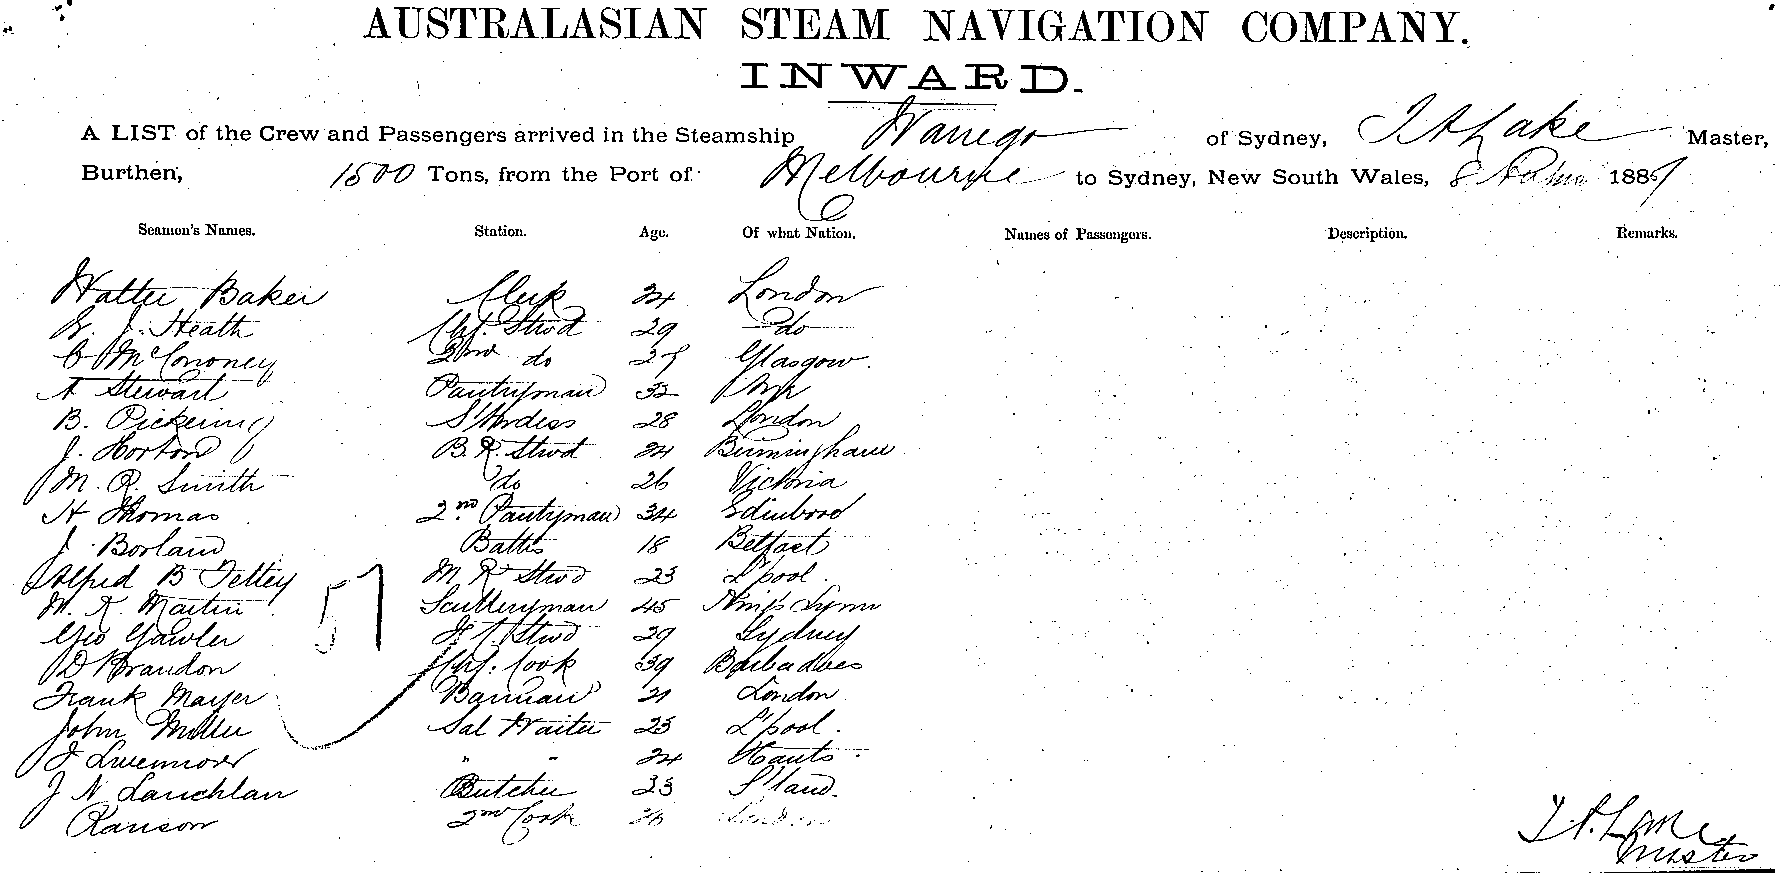 AUSTRALASIAN STEAM NAVIGATION COMPANY.
INWARD.
A LIST of the Crew and Passengers arrived in the Steamship Warrego of Sydney, T A Lake Master,
Burthen, 1500 Tons, from the Port of Melbourne to Sydney, New South Wales, 8 188
Seamen's Names. Station. Age. Of what Nation. Names of Passengers. Description. Remarks.
Walter Baker Clerk 24 London
J. Heath Chf. Stwd 29 do
McCononey 2nd do Glasgow.
A Stewart Pantryman 32
B. Pickering St'wdess 28 London
J. Horton B.R. Stwd 24 Birmingham
M. R. Smith do 26 Victoria
H Thomas 2nd Pantryman 34 Edinboro
J Borland Batt's 18 Belfast
Alfred B Tettey M R Stwd 23 L'pool.
M. R. Martin Sculleryman 45 King's Lynn
Geo Gawler F. C. Stwd 29 Sydney
57
D Brandon Chf. Cook 39 Barbadoes
Frank Mayer Barman 21 London
John Miller Sal Waiter 23 L'pool.
J " " 24 Hants.
J N Lauchlan Butcher 23 S'land.
Ranson 2nd Cook 26 London
T A. Lake
Master